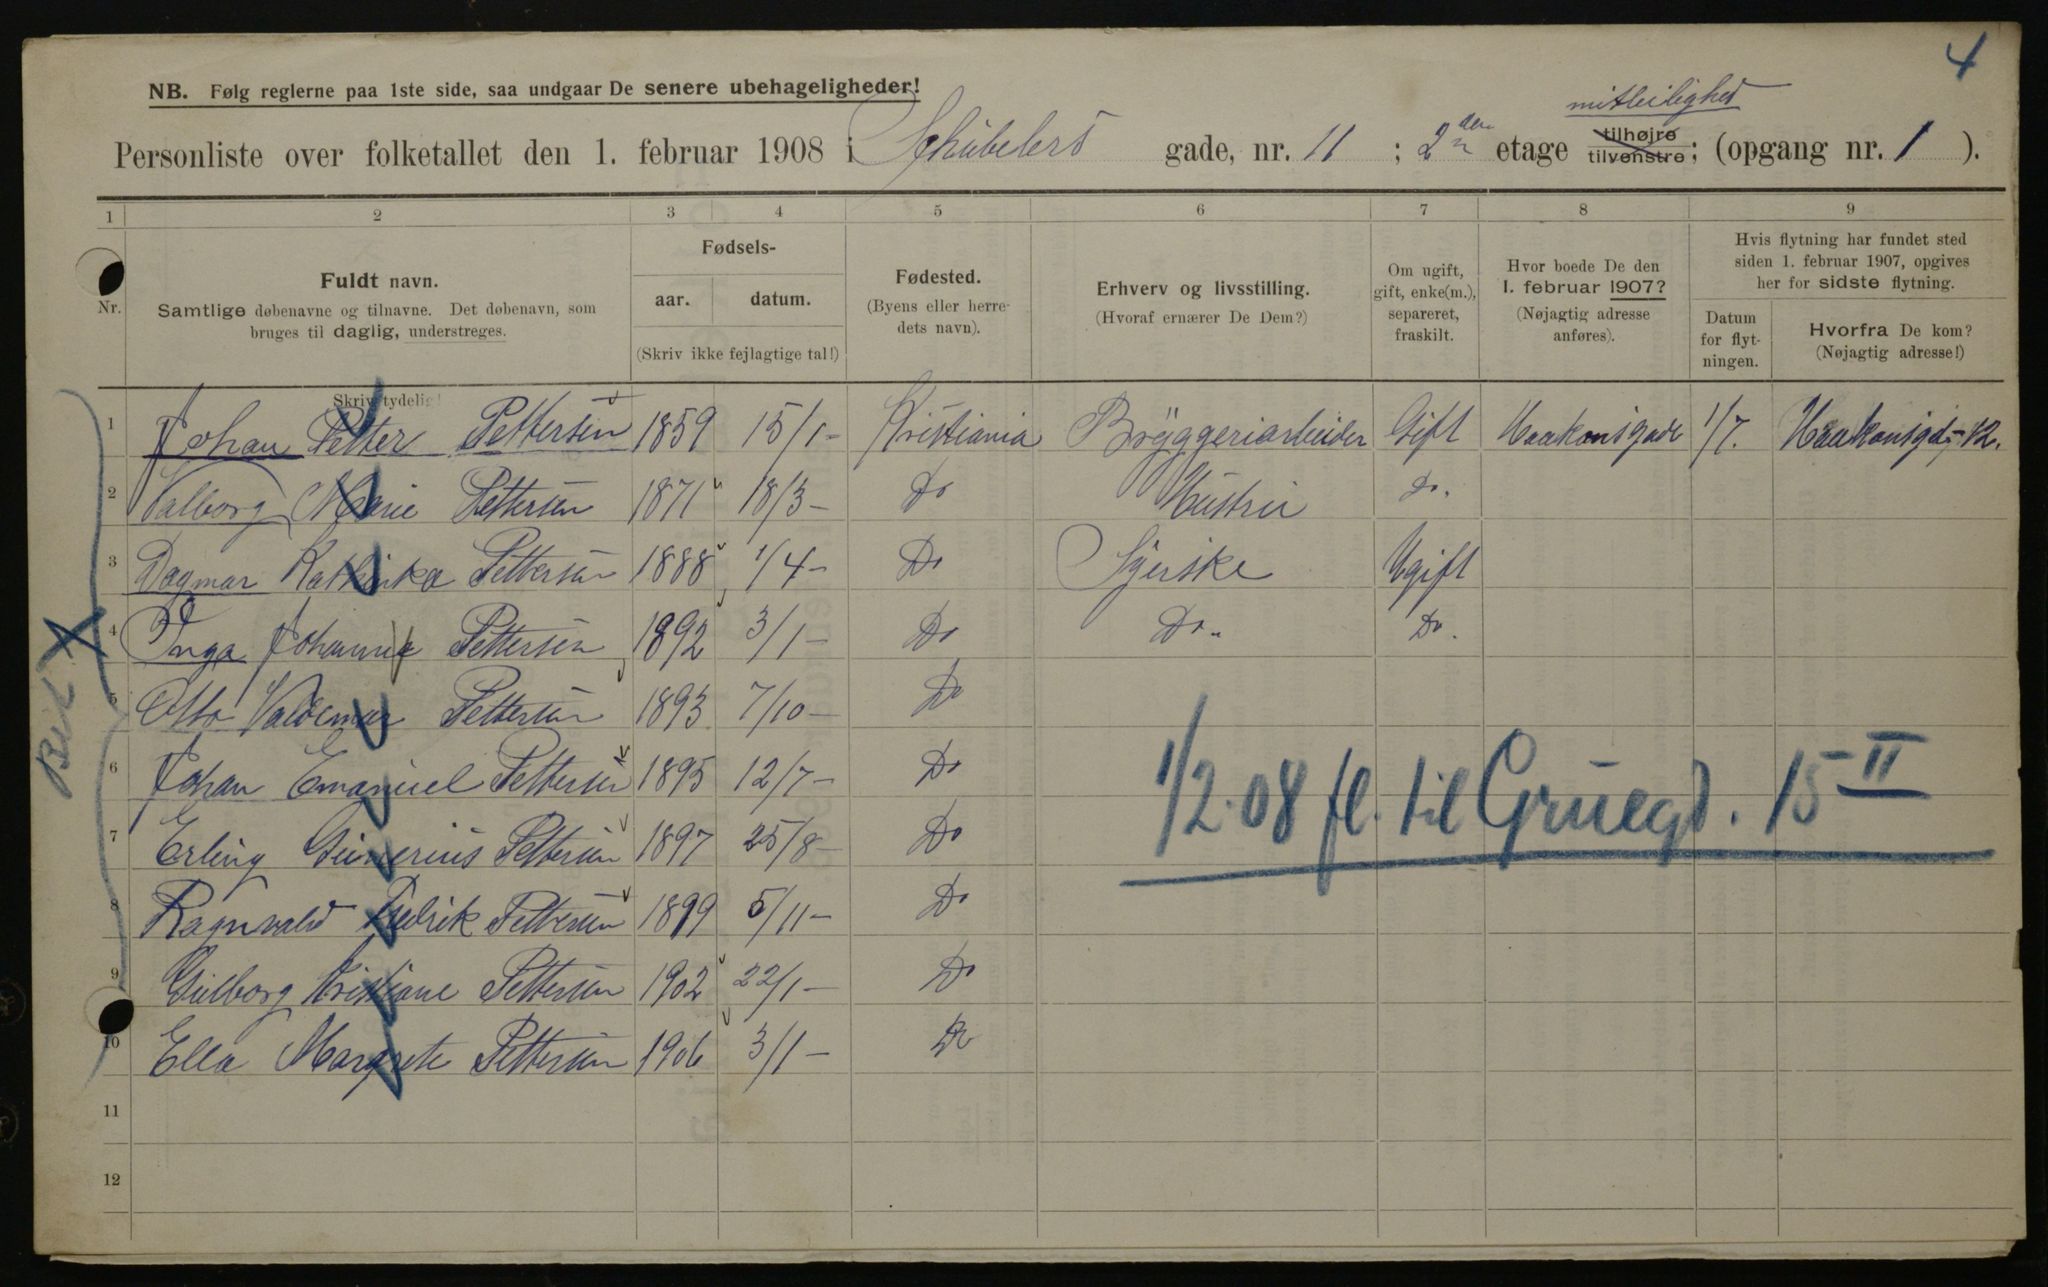 4
NB. Følg reglerne paa 1ste side, saa undgaar De senere ubehageligheder!
mitleilighed
Personliste over folketallet den 1. februar 1908 i Schübelers gade, nr. 11 ; 2den etage tilhøjre tilvenstre; (opgang nr. 1 ).
1 2 3 4 5 6 7 8 9
Nr.
Fuldt navn.
Samtlige døbenavne og tilnavne. Det døbenavn, som
bruges til daglig, understreges.
Skriv tydelig!
Fødsels-
aar. datum.
(Skriv ikke fejlagtige tal!)
Fødested.
(Byens eller herre-
dets navn).
Erhverv og livsstilling.
(Hvoraf ernærer De Dem?)
Om ugift,
gift, enke(m.),
separeret,
fraskilt.
Hvor boede De den
1. februar 1907?
(Nøjagtig adresse
anføres).
Hvis flytning har fundet sted
siden 1. februar 1907, opgives
her for sidste flytning.
Datum
for flyt-
ningen.
Hvorfra De kom?
(Nøjagtig adresse!)
1 Johan Petter Pettersen 1859 15/1- Kristiania Brÿggeriarbeider Gift Haakonsgade 1/7. Haakonsgd.-12.
2 Valborg Marie Pettersen 1871 18/3- Do Hustru Do.
3 Dagmar Kathinka Pettersen 1888 1/4- Do Syerske Ugift
4 Inga Johanne Pettersen 1892 3/1- Do Do.. Do.
5 Otto Valdemar Pettersen 1893 7/10- Do
6 Johan Emanuel Pettersen 1895 12/7- Do
7 Erling Gunerius Pettersen 1897 25/8- Do
8 Ragnvald Fredrik Pettersen 1899 5/11- Do
9 Gudborg Kristiane Pettersen 1902 22/1- Do
10 Ella Margrete Pettersen 1906 3/1- Do
11
12
1/2-08 fl. til Gruegd. 15 II